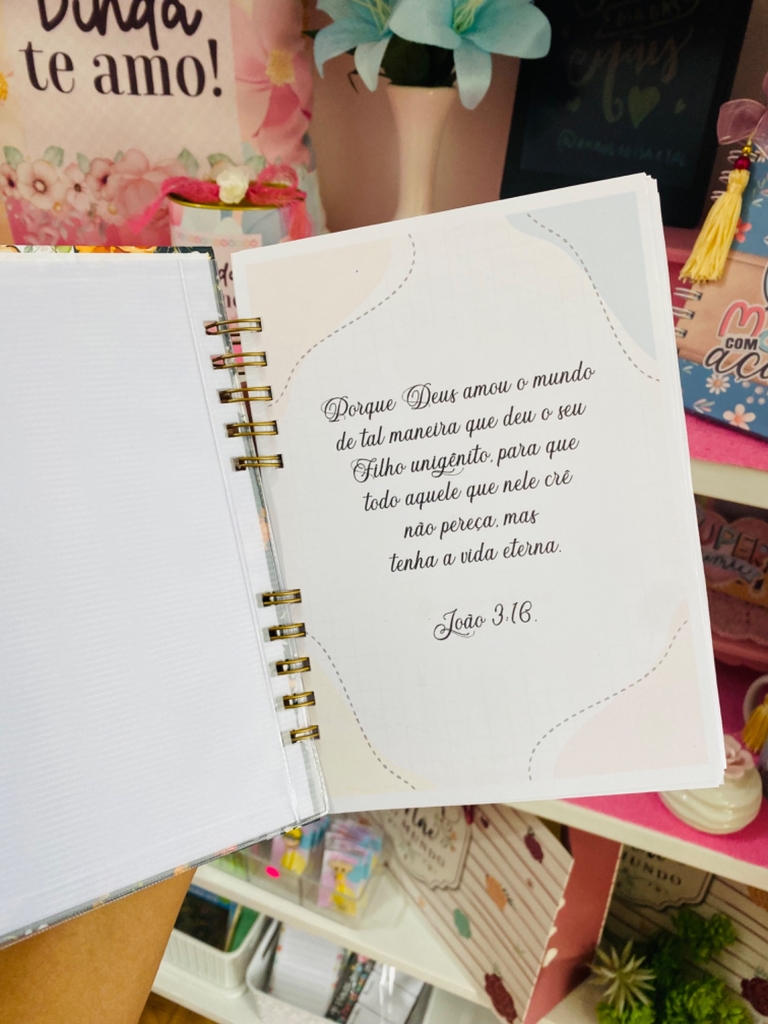 Dinda
te amo!
Porque Deus amou o mundo
de tal maneira que deu o seu
Filho unigênito, para que
todo aquele que nele crê
não pereça, mas
tenha a vida eterna.
João 3:16.
COM
SUPER
MUNDO